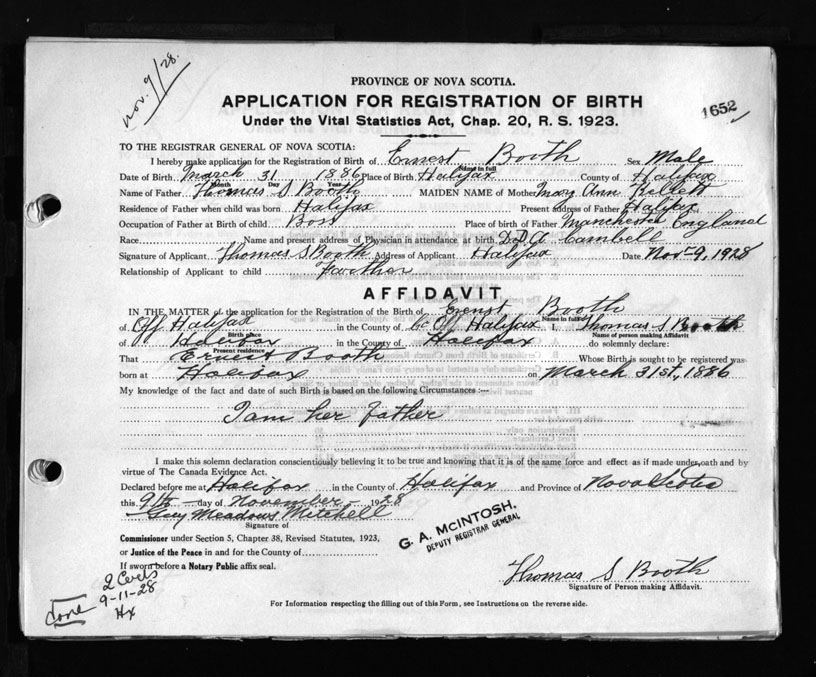 Nov. 9/28.
PROVINCE OF NOVA SCOTIA.
APPLICATION FOR REGISTRATION OF BIRTH
1652
Under the Vital Statistics Act, Chap. 20, R. S. 1923.
TO THE REGISTRAR GENERAL OF NOVA SCOTIA:
I hereby make application for the Registration of Birth of Ernest Booth Sex Male
Name in full
Date of Birth March 31 1886 Place of Birth Halifax County of Halifax
Month Day Year
Name of Father Thomas S Booth MAIDEN NAME of Mother Mary Ann Kellett
Residence of Father when child was born Halifax Present address of Father Halifax
Occupation of Father at Birth of child Boss Place of birth of Father Manchester England
Race Name and present address of Physician in attendance at birth D.D.A Cambell
Signature of Applicant Thomas S. Booth Address of Applicant Halifax Date Nov 9, 1928
Relationship of Applicant to child Farther
AFFIDAVIT
IN THE MATTER of the application for the Registration of Birth of Erenst Booth
Name in full
of Off Halifax in the County of Co Off Halifax I, Thomas S Booth
Birth place Name of person making Affidavit
of Halifax in the County of Halifax do solemnly declare:
Present residence
That Ernest Booth Whose Birth is sought to be registered was
born at Halifax on March 31st, 1886
My knowledge of the fact and date of such Birth is based on the following Circumstances :—
I am her father
I make this solemn declaration conscientiously believing it to be true and knowing that it is of the same force and effect as if made under oath and by
virtue of The Canada Evidence Act.
Declared before me at Halifax in the County of Halifax and Province of Nova Scotia
this 9th day of November 1928
Guy Meadows Mitchell
Signature of
Commissioner under Section 5, Chapter 38, Revised Statutes, 1923,
or Justice of the Peace in and for the County of
If sworn before a Notary Public affix seal.
G. A. McINTOSH,
DEPUTY REGISTRAR GENERAL
Thomas S Booth
Signature of Person making Affidavit.
2 Certs
9-11-28
Hx
Done
For Information respecting the filling out of this Form, see Instructions on the reverse side.